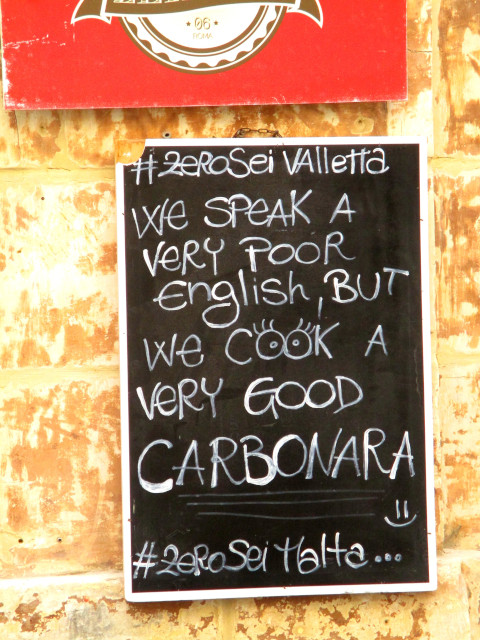 06
ROMA
#zeroSei Valletta
We SPEAK A
VeRY POOR
English, BUT
We COOK A
VeRY GOOD
CARBONARA
#zeroSei Malta...